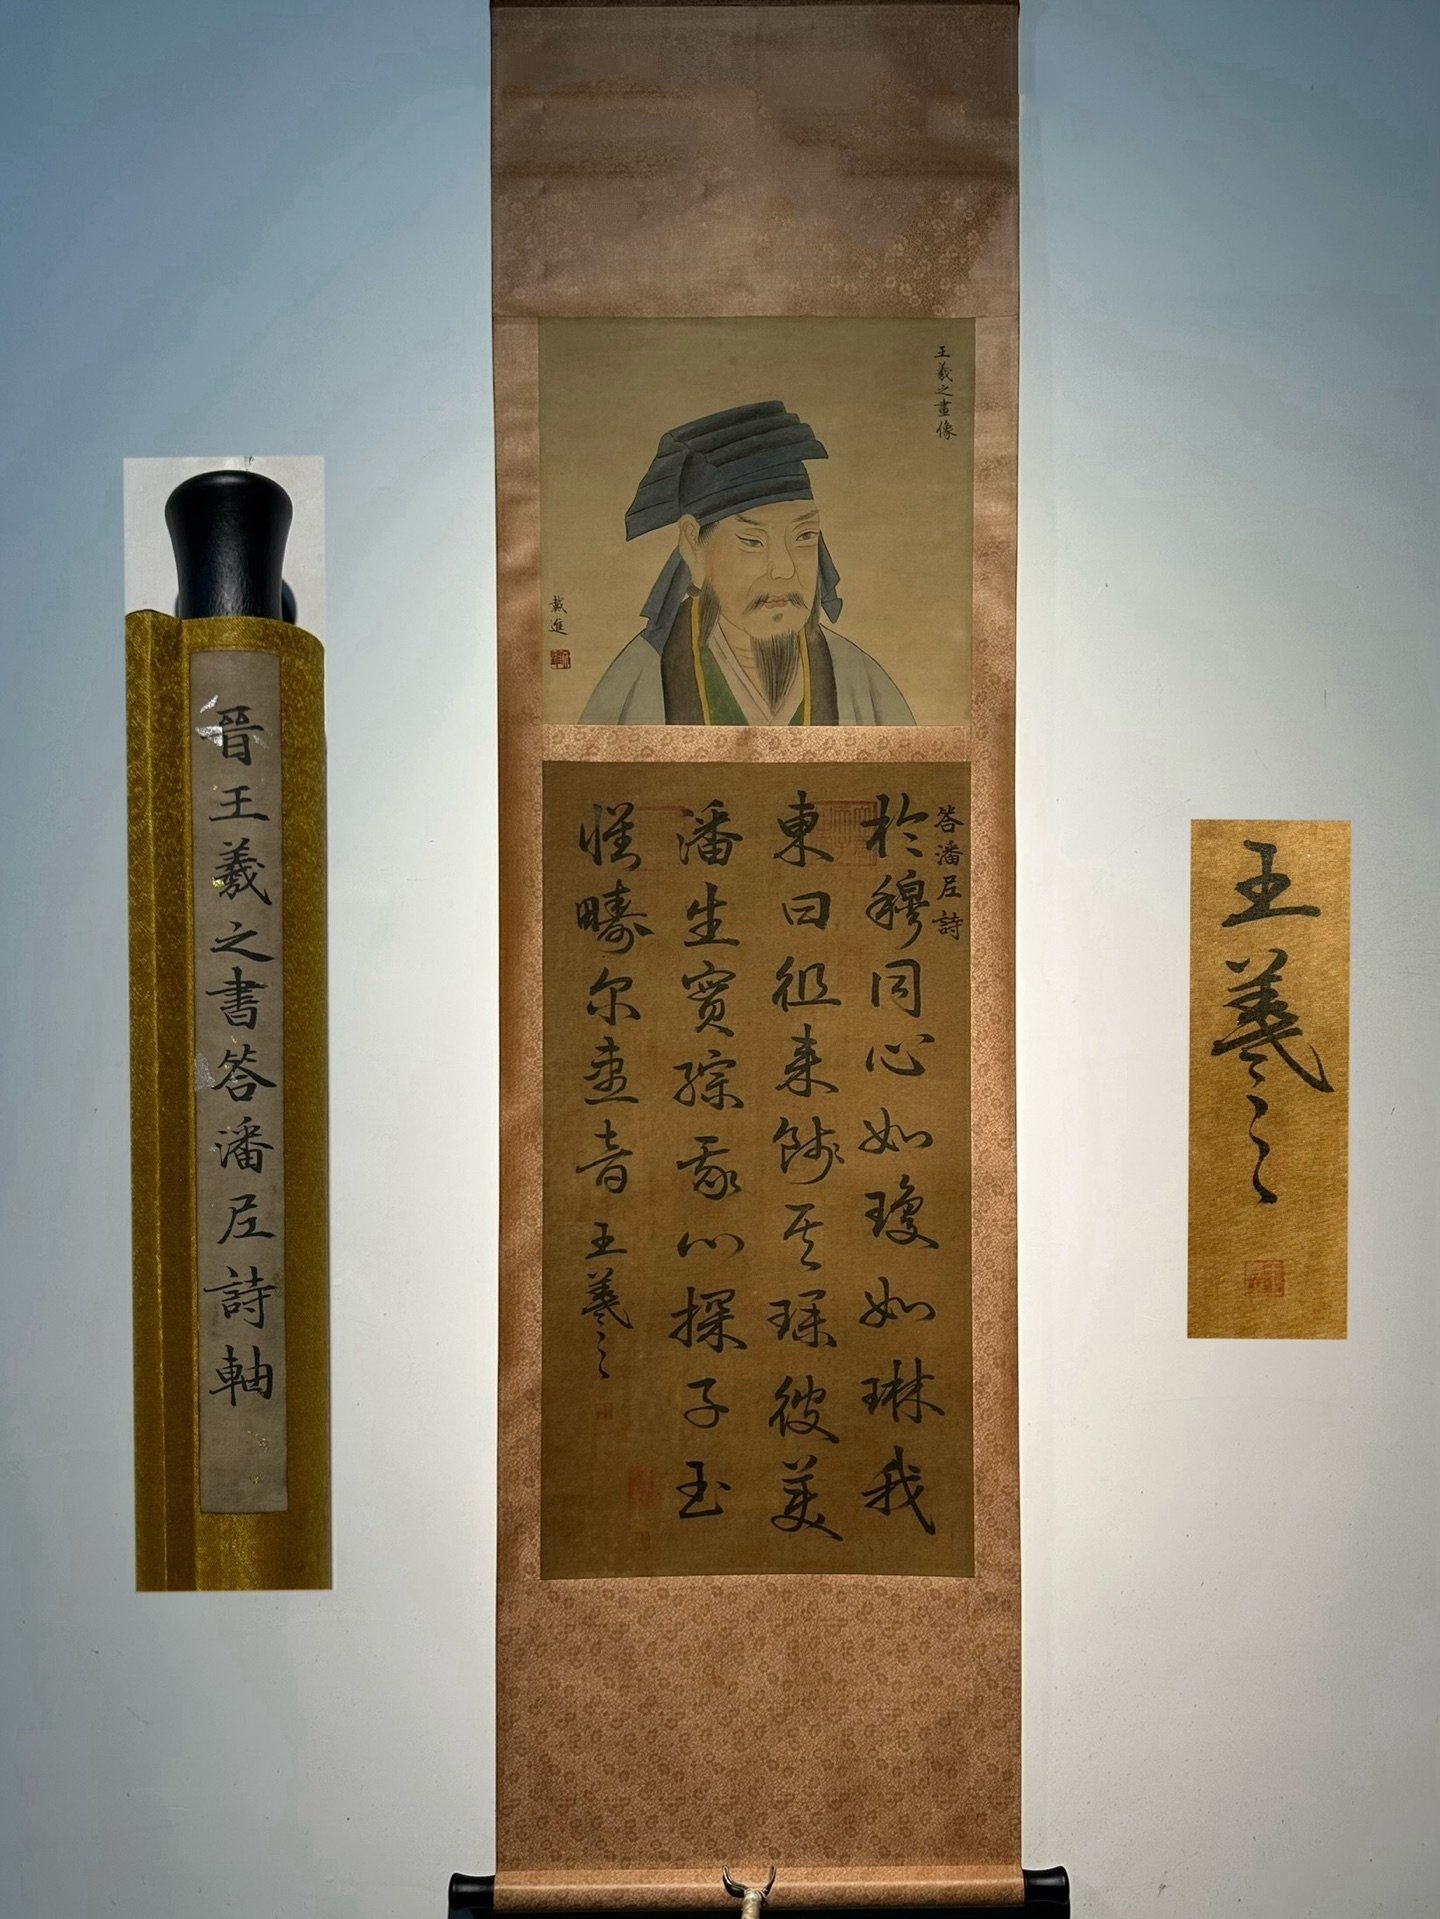 晉王羲之書答潘尼詩軸
王羲之畫像
戴進
答潘尼詩
於穆同心如瓊如琳我
東曰徂来餞其琛彼美
潘生實綜我心探子玉
懷疇尔蕙音
王羲之
王羲之